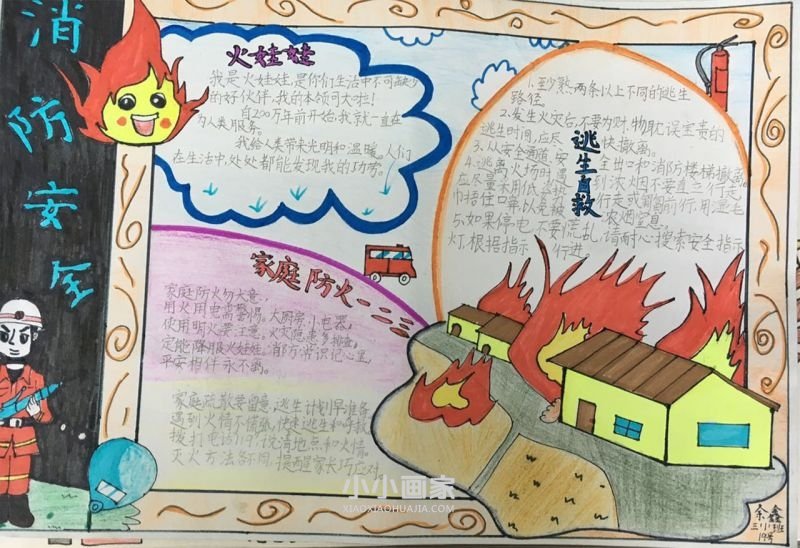 消防安全
火娃娃
我是火娃娃,是你们生活中不可缺少
的好伙伴,我的本领可大啦!
自200万年前开始,我就一直在
为人类服务。
我给人类带来光明和温暖。人们
在生活中,处处都能发现我的功劳。
逃生自救
1.至少熟 两条以上不同的逃生
路径。
2.发生火灾后,不要为 财物耽误宝贵的
逃生时间,应尽 快撤离。
3.从安全通道、安 全出口和消防楼梯撤离。
4.逃离火场时遇 到浓烟不要直立行走,
应尽量采用低 行走或匍匐前行,用湿毛
巾捂住口鼻,以免被 浓烟窒息。
5.如果停电,不要慌乱,请耐心搜索安全指示
灯,根据指示 行进。
家庭防火一二三
家庭防火勿大意,
用火用电需警惕。大厨房,小电器,
使用明火要注意。火灾隐患多排查,
定能降服火娃娃。消防常识记心里,
平安相伴永不离。
家庭疏散要留意,逃生计划早准备
遇到火情不慌张,快速逃生和呼救
拨打电话119,说清地点和火情。
灭火方法各不同,提醒家长巧应对
小小画家
XIAOXIAOHUAJIA.COM
余鑫
三(1)班
19号